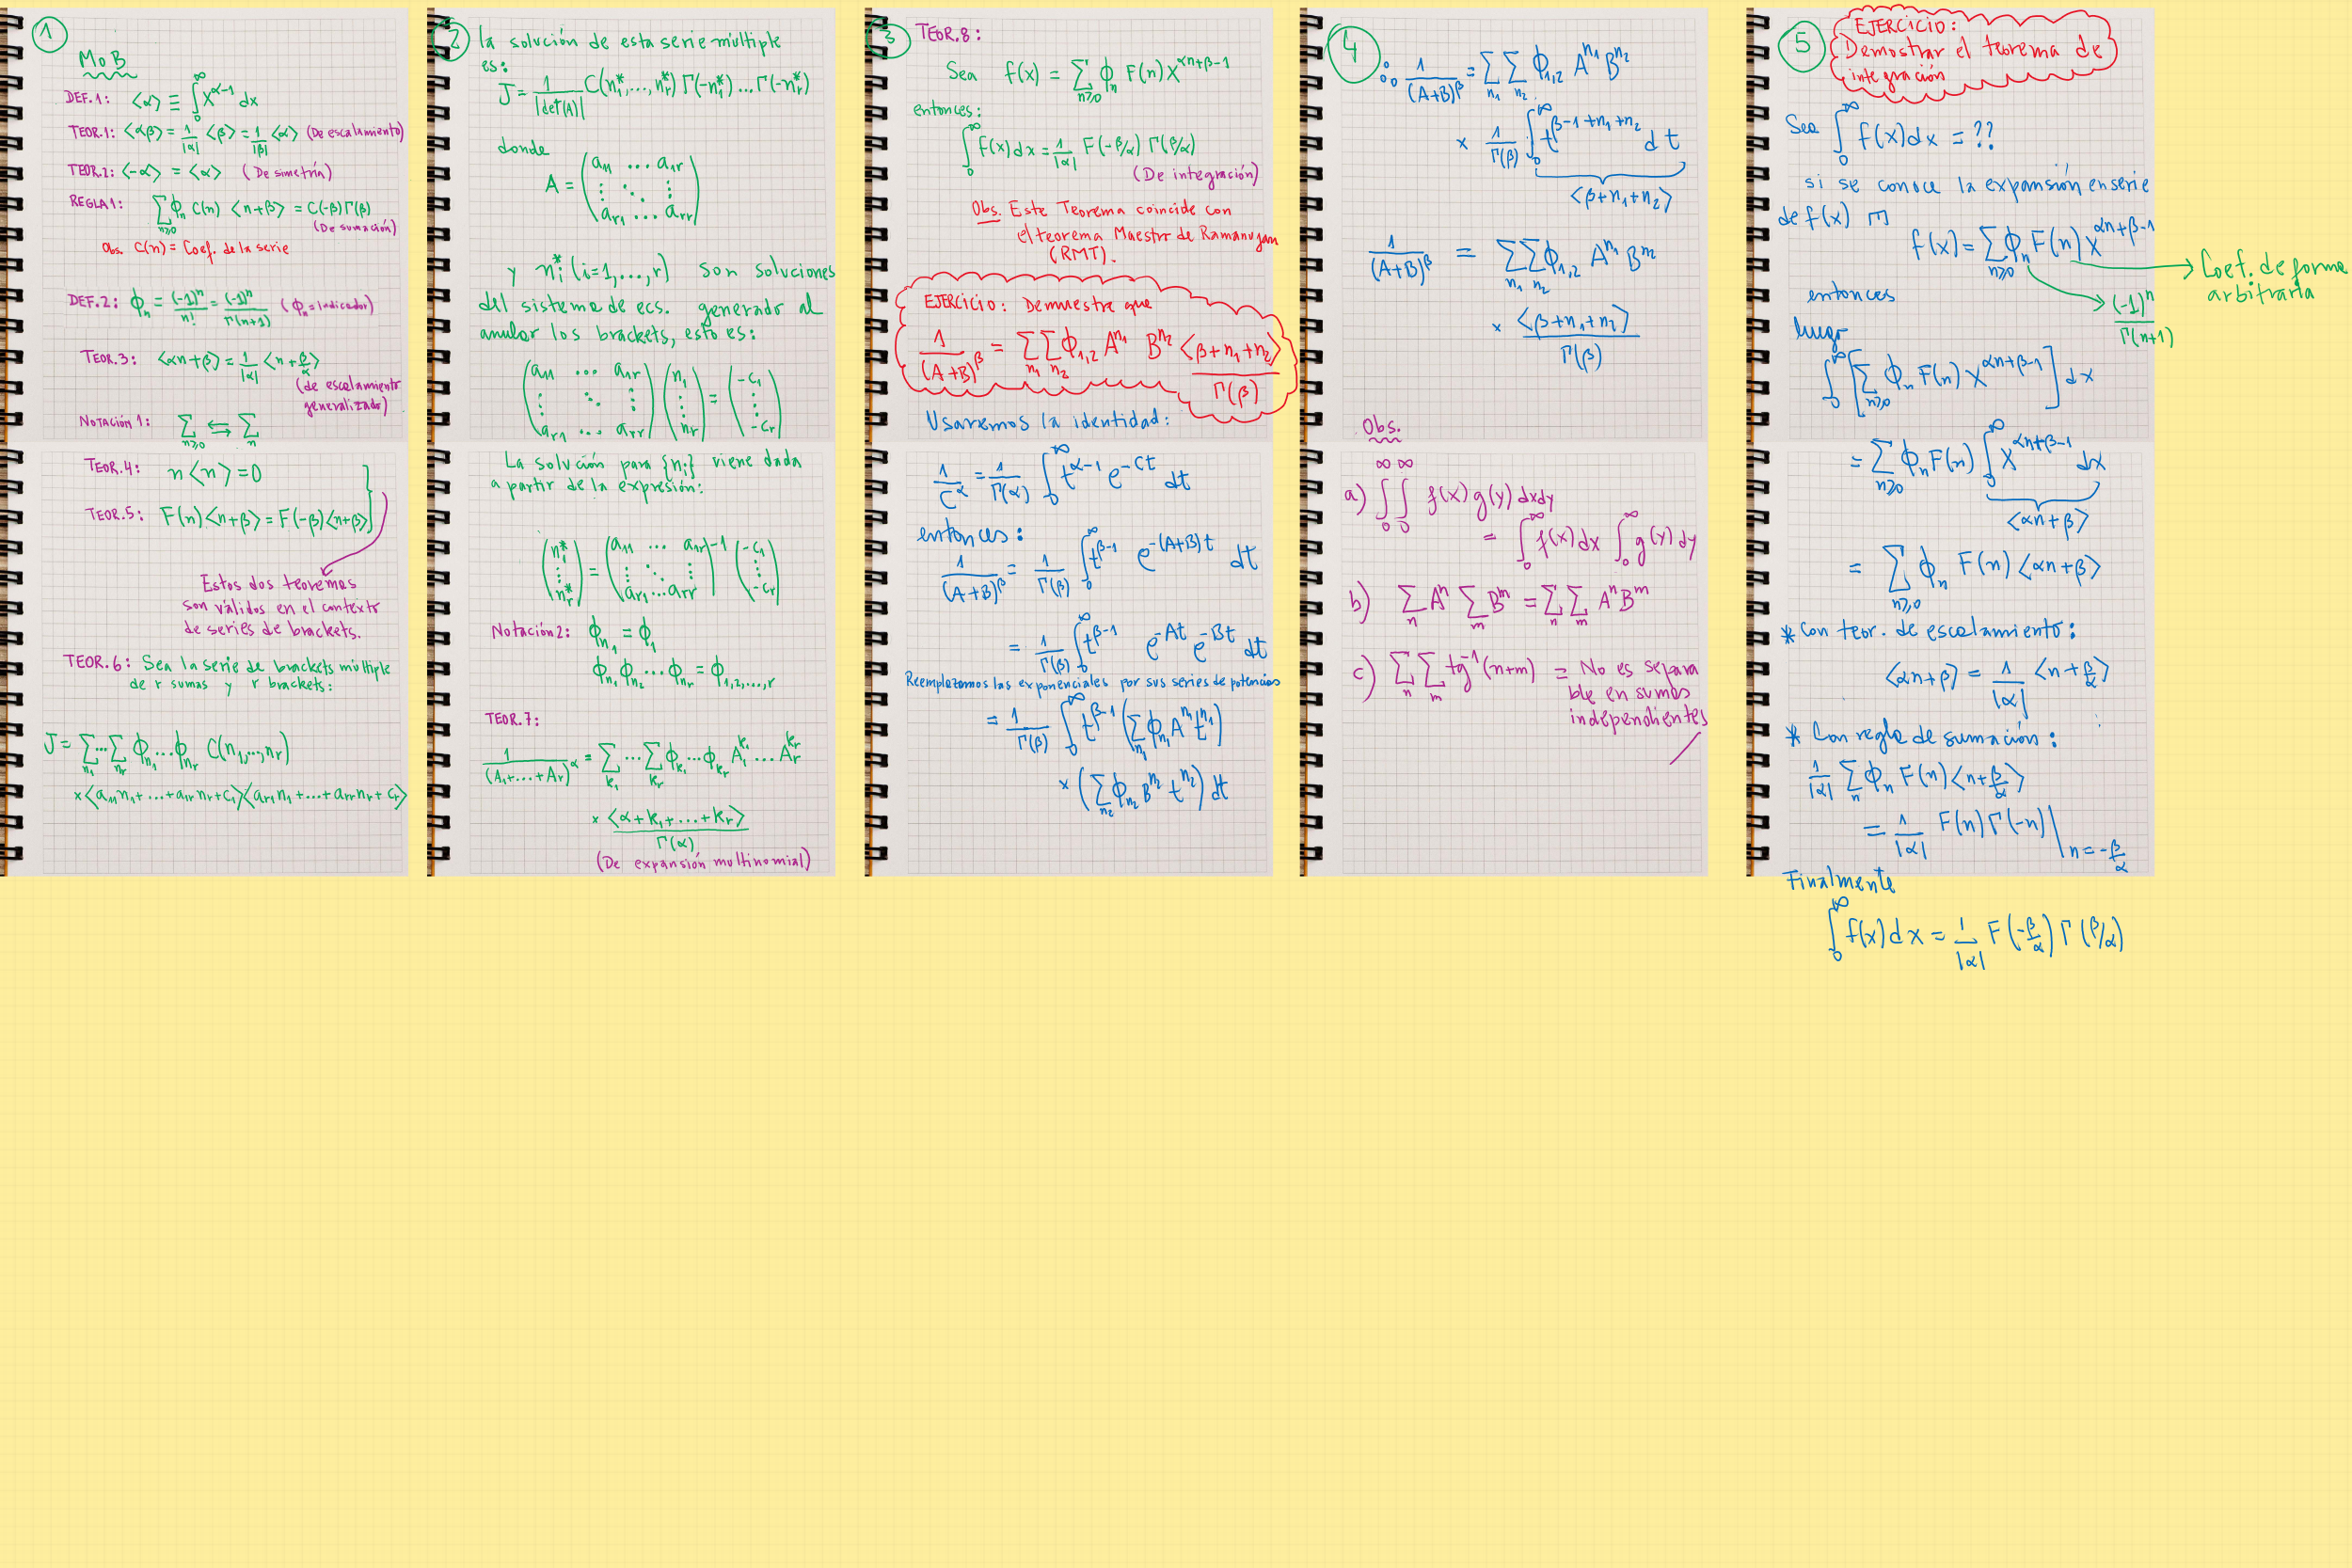 1
MoB
DEF.1: ⟨α⟩ ≡ ∫₀^∞ x^{α-1} dx
TEOR.1: ⟨αβ⟩ = 1/|α| ⟨β⟩ = 1/|β| ⟨α⟩ (De escalamiento)
TEOR.2: ⟨-α⟩ = ⟨α⟩ (De simetría)
REGLA1: ∑_{n≥0} ϕ_n C(n) ⟨n+β⟩ = C(-β) Γ(β)
(De sumación)
obs. C(n) = Coef. de la serie
DEF.2: ϕ_n = (-1)^n/n! = (-1)^n/Γ(n+1) (ϕ_n = indicador)
TEOR.3: ⟨αn+β⟩ = 1/|α| ⟨n+β/α⟩
(de escalamiento
generalizado)
Notación 1: ∑_{n≥0} ⇆ ∑_n
TEOR.4: n⟨n⟩ = 0
TEOR.5: F(n)⟨n+β⟩ = F(-β)⟨n+β⟩
Estos dos teoremas
son válidos en el contexto
de series de brackets.
TEOR.6: Sea la serie de brackets múltiple
de r sumas y r brackets:
J = ∑_{n_1} ... ∑_{n_r} ϕ_{n_1} ... ϕ_{n_r} C(n_1,...,n_r)
×⟨a_{11}n_1+...+a_{1r}n_r+c_1⟩⟨a_{r1}n_1+...+a_{rr}n_r+c_r⟩
2
la solución de esta serie múltiple
es:
J = 1/|det(A)| C(n_1^*,...,n_r^*) Γ(-n_1^*)...Γ(-n_r^*)
donde
A = (a_{11} ... a_{1r}
⋮ ⋱ ⋮
a_{r1} ... a_{rr})
y n_i^* (i=1,...,r) son soluciones
del sistema de ecs. generado al
anular los brackets, esto es:
(a_{11} ... a_{1r}) (n_1) = (-c_1)
⋮ ⋱ ⋮ ⋮ ⋮
(a_{r1} ... a_{rr}) (n_r) (-c_r)
La solución para {n_i} viene dada
a partir de la expresión:
(n_1^*) = (a_{11} ... a_{1r})^{-1} (-c_1)
⋮ ⋮ ⋱ ⋮ ⋮
(n_r^*) (a_{r1} ... a_{rr}) (-c_r)
Notación 2: ϕ_{n_1} = ϕ_1
ϕ_{n_1} ϕ_{n_2} ... ϕ_{n_r} = ϕ_{1,2,...,r}
TEOR.7:
1/(A_1+...+A_r)^α = ∑_{k_1} ... ∑_{k_r} ϕ_{k_1} ... ϕ_{k_r} A_1^{k_1} ... A_r^{k_r}
× ⟨α+k_1+...+k_r⟩/Γ(α)
(De expansión multinomial)
3
TEOR.8:
Sea f(x) = ∑_{n≥0} ϕ_n F(n) x^{αn+β-1}
entonces:
∫₀^∞ f(x) dx = 1/|α| F(-β/α) Γ(β/α)
(De integración)
Obs. Este Teorema coincide con
el teorema Maestro de Ramanujan
(RMT).
EJERCICIO: Demuestra que
1/(A+B)^β = ∑_{n_1} ∑_{n_2} ϕ_{1,2} A^{n_1} B^{n_2} ⟨β+n_1+n_2⟩/Γ(β)
Usaremos la identidad:
1/C^α = 1/Γ(α) ∫₀^∞ t^{α-1} e^{-Ct} dt
entonces:
1/(A+B)^β = 1/Γ(β) ∫₀^∞ t^{β-1} e^{-(A+B)t} dt
= 1/Γ(β) ∫₀^∞ t^{β-1} e^{-At} e^{-Bt} dt
Reemplazamos las exponenciales por sus series de potencias
= 1/Γ(β) ∫₀^∞ t^{β-1} (∑_{n_1} ϕ_{n_1} A^{n_1} t^{n_1})
× (∑_{n_2} ϕ_{n_2} B^{n_2} t^{n_2}) dt
4
∴ 1/(A+B)^β = ∑_{n_1} ∑_{n_2} ϕ_{1,2} A^{n_1} B^{n_2}
× 1/Γ(β) ∫₀^∞ t^{β-1+n_1+n_2} dt
⟨β+n_1+n_2⟩
1/(A+B)^β = ∑_{n_1} ∑_{n_2} ϕ_{1,2} A^{n_1} B^{n_2}
× ⟨β+n_1+n_2⟩/Γ(β)
Obs.
a) ∫₀^∞ ∫₀^∞ f(x) g(y) dxdy
= ∫₀^∞ f(x) dx ∫₀^∞ g(y) dy
b) ∑_n A^n ∑_m B^m = ∑_n ∑_m A^n B^m
c) ∑_n ∑_m tg^{-1}(n+m) = No es separa
ble en sumas
independientes
5
EJERCICIO:
Demostrar el teorema de
integración
Sea ∫₀^∞ f(x) dx = ??
si se conoce la expansión en serie
de f(x)
f(x) = ∑_{n≥0} ϕ_n F(n) x^{αn+β-1}
Coef. de forma
arbitraria
(-1)^n/Γ(n+1)
entonces
luego
∫₀^∞ [∑_{n≥0} ϕ_n F(n) x^{αn+β-1}] dx
= ∑_{n≥0} ϕ_n F(n) ∫₀^∞ x^{αn+β-1} dx
⟨αn+β⟩
= ∑_{n≥0} ϕ_n F(n) ⟨αn+β⟩
* Con teor. de escalamiento:
⟨αn+β⟩ = 1/|α| ⟨n+β/α⟩
* Con regla de sumación:
1/|α| ∑_n ϕ_n F(n) ⟨n+β/α⟩
= 1/|α| F(n) Γ(-n) |_{n=-β/α}
Finalmente
∫₀^∞ f(x) dx = 1/|α| F(-β/α) Γ(β/α)